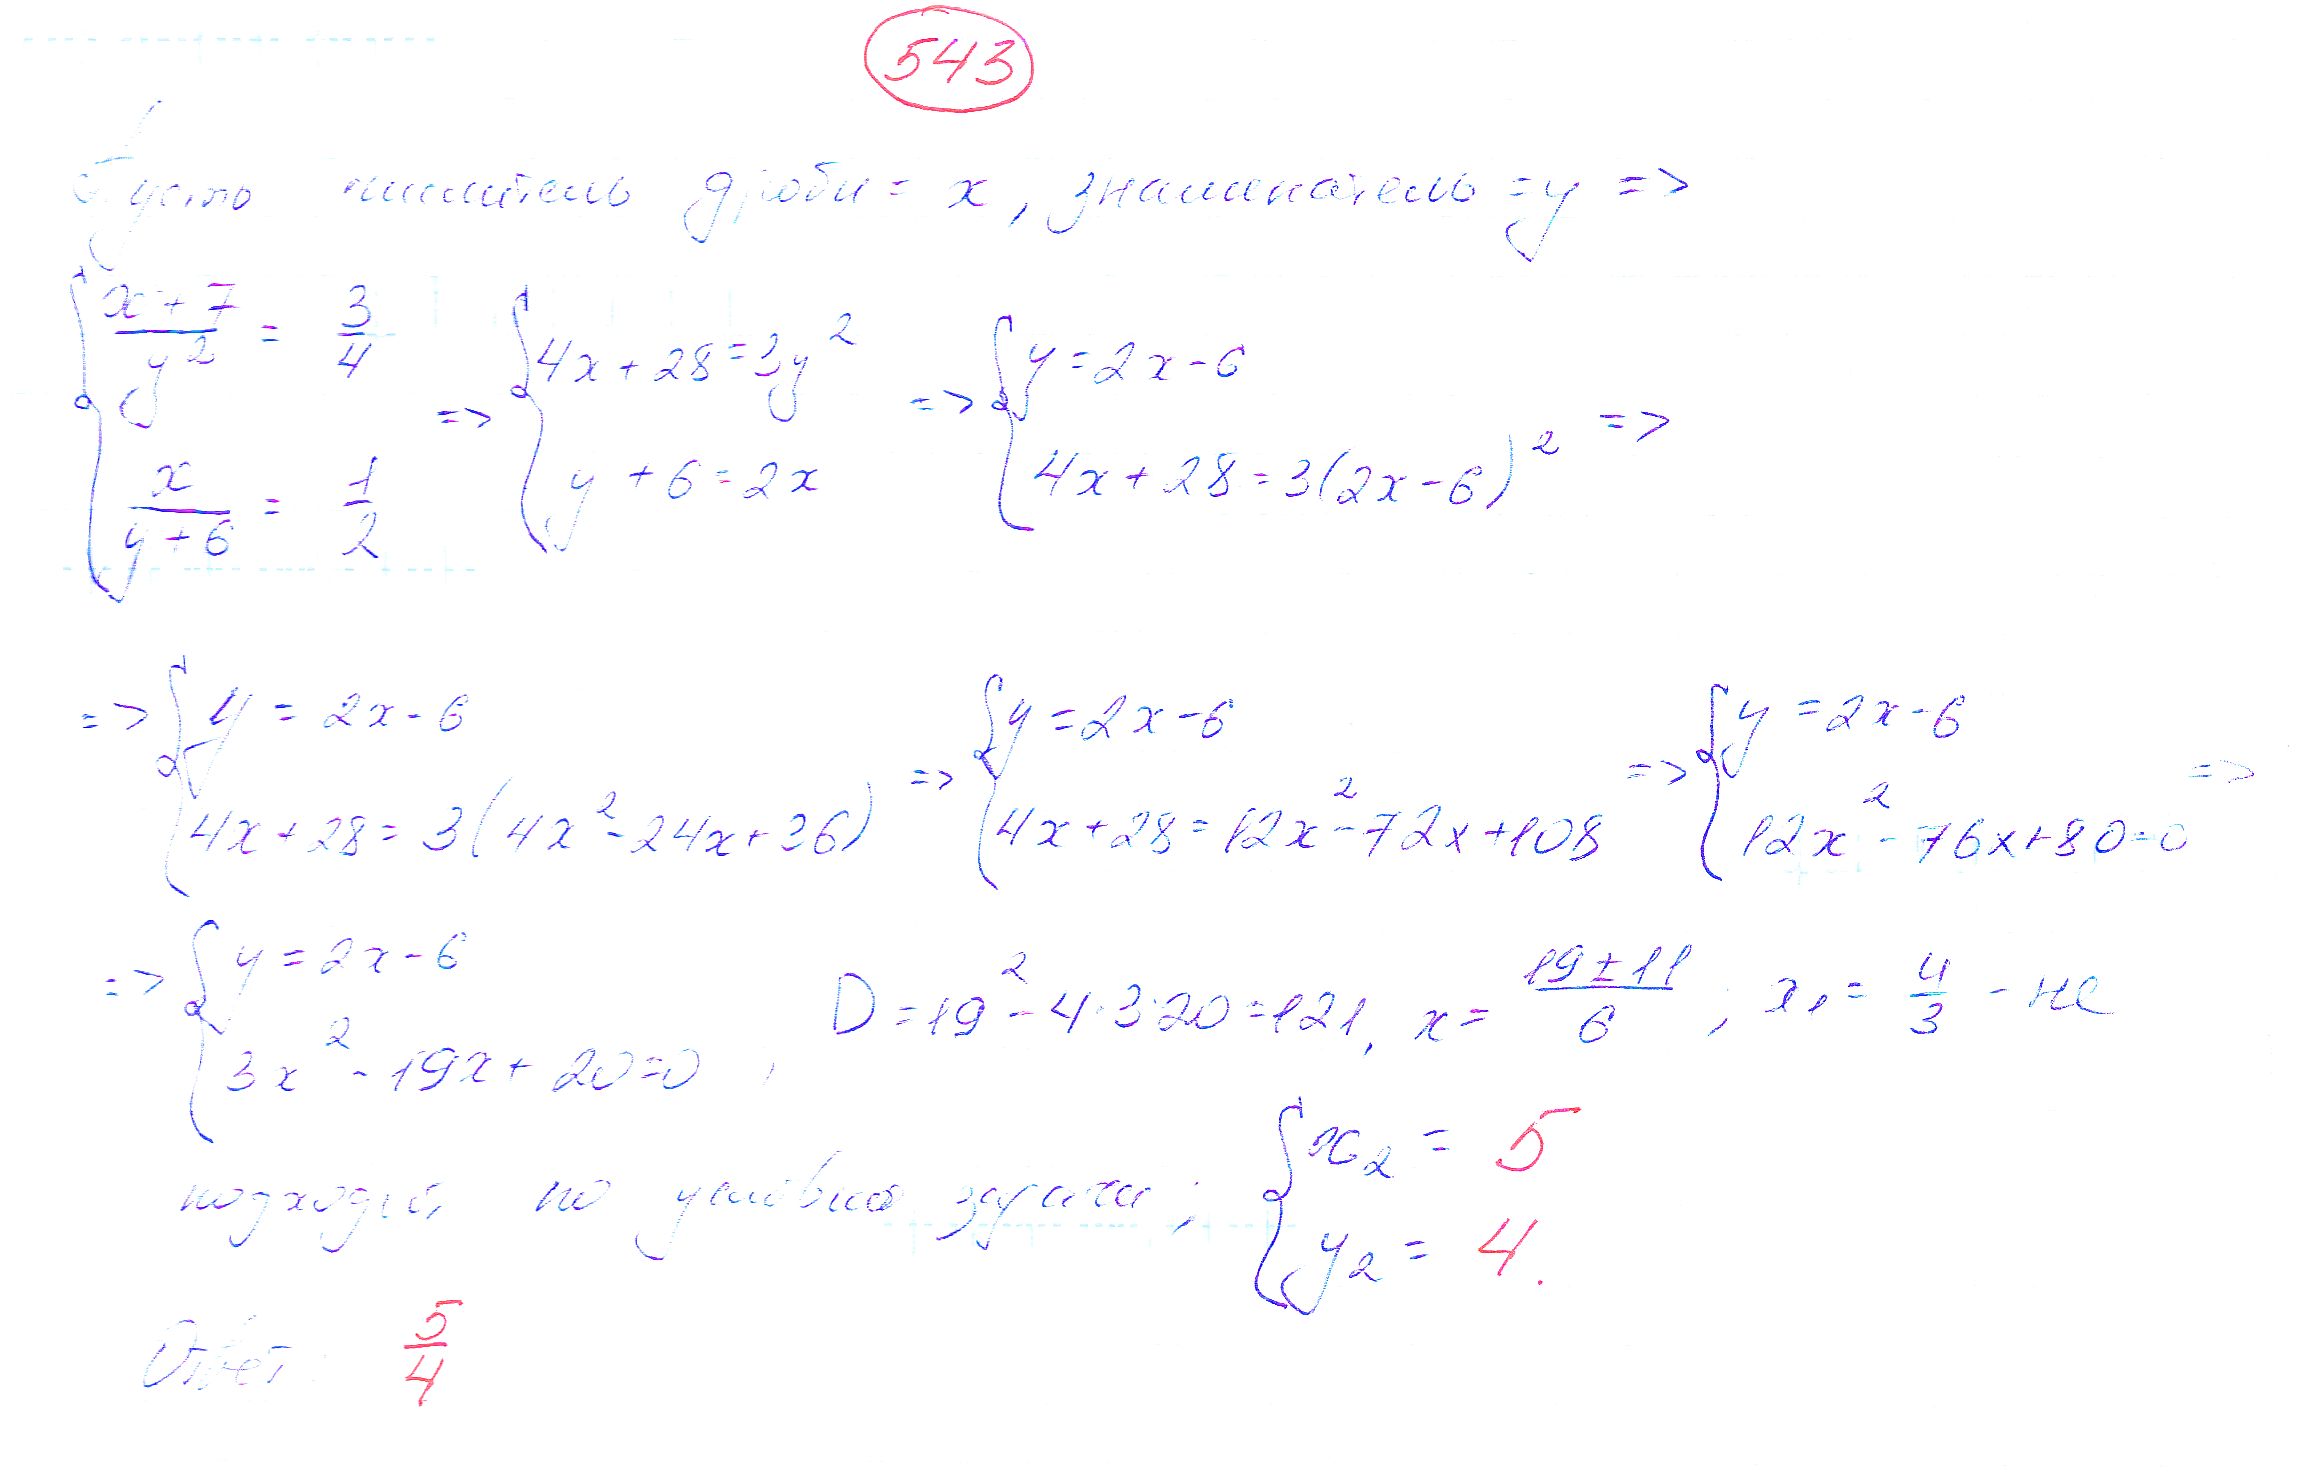 543
Пусть числитель дроби = x, знаменатель = y =>
{ (x+7)/y² = 3/4 ; x/(y+6) = 1/2 => { 4x+28=3y² ; y+6=2x => { y=2x-6 ; 4x+28=3(2x-6)² =>
=> { y = 2x-6 ; 4x+28=3(4x²-24x+36) => { y=2x-6 ; 4x+28=12x²-72x+108 => { y=2x-6 ; 12x²-76x+80=0 =>
=> { y=2x-6 ; 3x²-19x+20=0 , D=19²-4·3·20=121, x= (19±11)/6 ; x₁= 4/3 - не
подходит по условию задачи; { x₂ = 5 ; y₂ = 4.
Ответ: 5/4